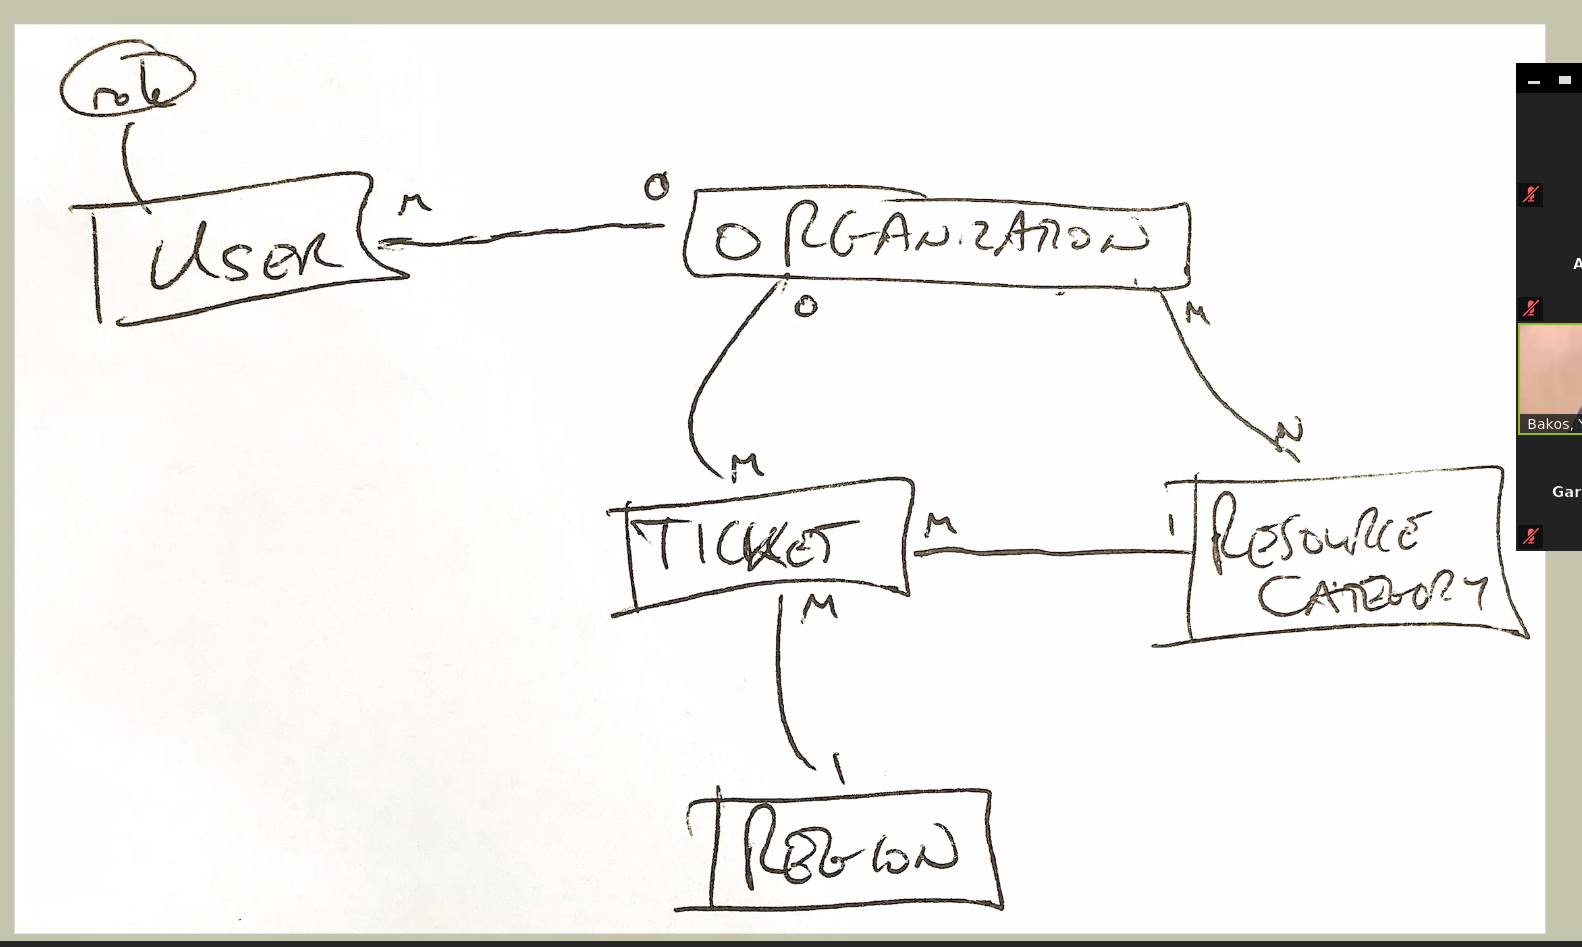 role
M
O
USER
ORGANIZATION
O
M
M
N
TICKET
M
1
RESOURCE
CATEGORY
M
1
REGION
A
Bakos, Y
Gar